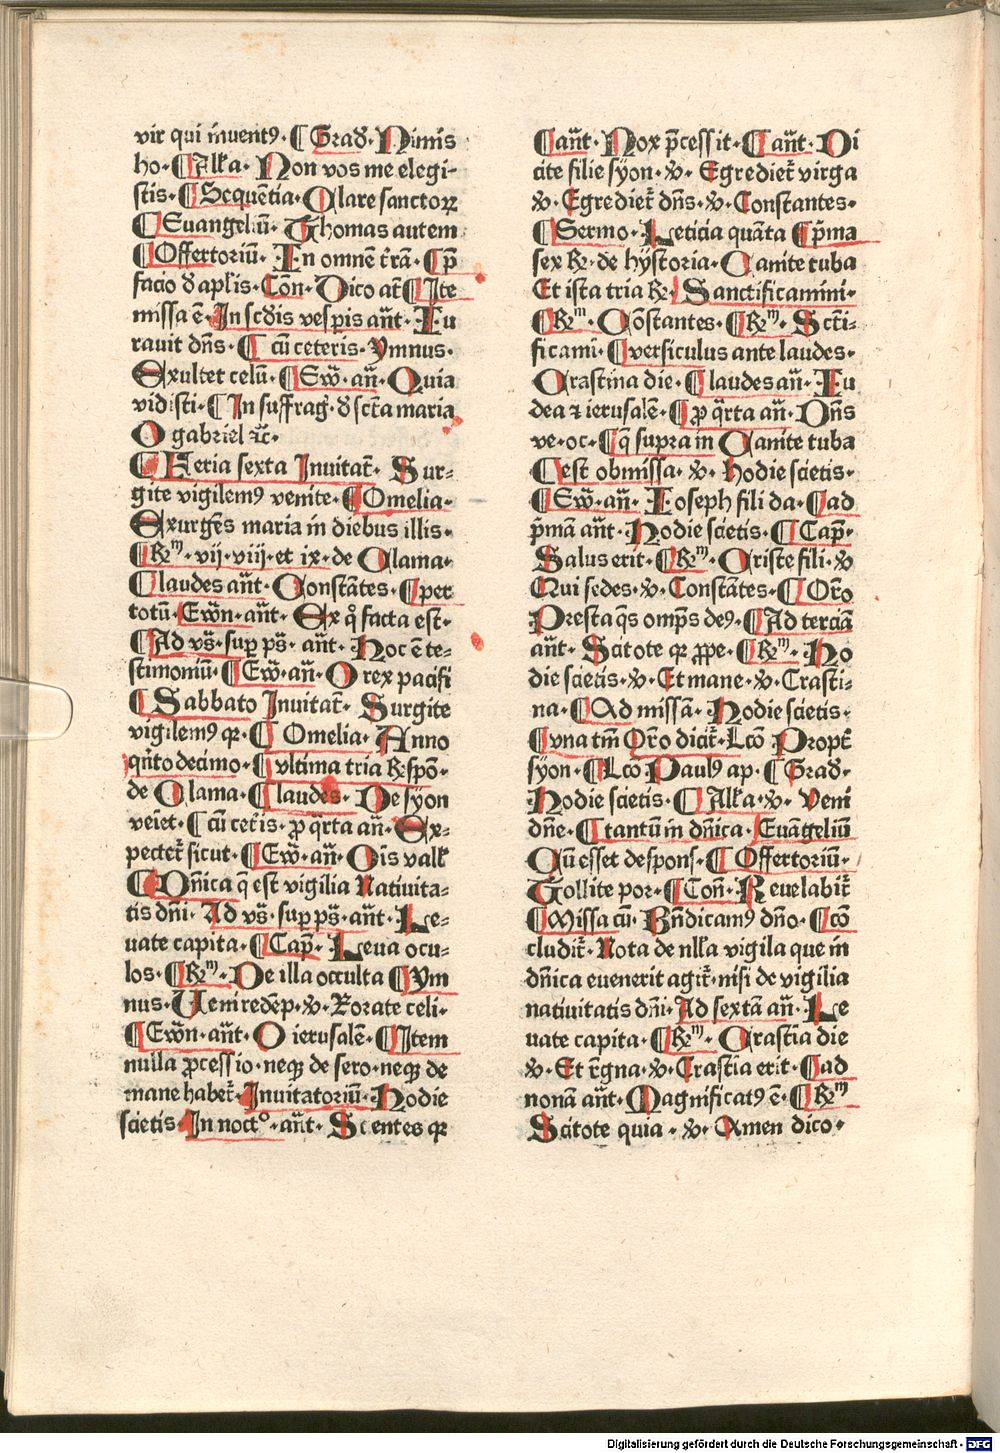 vir qui inuentꝰ· ¶ Grad̄· Nimis
ho· ¶ Alľa· Non vos me elegi-
stis· ¶ Sequētia· Clare sanctoꝝ
¶ Euangeliū· Thomas autem
¶ Offertoriū· In omnē tr̄ā· ¶ p̄
facio ꝺ apľis· Cōn· Dico at̄ ¶ Ite
missa ē· In scdis vesꝑis añt· Iu
rauit dn̄s· ¶ cū ceteris· Ymnus·
Exultet celū· ¶ Ew̄· añ· Quia
vidisti· ¶ In suffraḡ· ꝺ sctā maria
O gabriel ⁊c̄·
¶ Feria sexta Inuitat̄· Sur-
gite vigilemꝰ venite· ¶ Omelia·
Exurgēs maria in diebus illis·
¶ ℞ᵐ· vij· viij· et ix· de Clama·
¶ laudes añt· Constātes· ¶ per
totū· Ew̄n· añt· Ex q̊ facta est·
¶ Ad vs̄· suꝑ ps̄· añt· Hoc ē te-
stimoniū· ¶ Ew̄· añ· O rex pacifi
¶ Sabbato Inuitat̄· Surgite
vigilemꝰ qꝛ· ¶ Omelia· Anno
qn̄to decimo· ¶ vltima tria ℞spō·
de Clama· ¶ laudes· De syon
veīet· ¶ cū cet̄is· ꝓ q̄rta añ· Ex-
pectet̄ sicut· ¶ Ew̄· añ· Oīs vall̄
¶ Dn̄ica q̄ est vigilia Natiuita-
tis dn̄i· Ad vs̄· suꝑ ps̄· añt· Le-
uate capita· ¶ Cap̄· Leua ocu-
los· ¶ ℞ᵐ· De illa occulta ¶ Ym
nus· Veni redēp· ℣· Rorate celi·
¶ Ew̄n· añt· O ierusalē· ¶ Item
nulla ꝓcessio· neqꝫ de sero· neqꝫ de
mane habet̄· Inuitatoriū· Hodie
scietis· In noctᵒ· añt· Scientes qꝛ
¶ añt· Nox p̄cessit· ¶ añt· Di
cite filie syon· ℣· Egrediet̄ virga
℣· Egrediet̄ dn̄s· ℣· Constantes·
¶ Sermo· Leticia quāta ¶ p̄ma
sex ℞· de hystoria· Canite tuba
Et ista tria ℞· Sanctificamini·
¶ ℞ᵐ· Cōstantes· ¶ ℞ᵐ· Scti-
ficami· ¶ versiculus ante laudes·
Crastina die· ¶ laudes añ· Iu
dea ⁊ ierusalē· ¶ ꝓ q̄rta añ· Dn̄s
ve· oc· ¶ q̄ supra in Canite tuba
¶ est obmissa· ℣· hodie scietis·
¶ Ew̄· añ· Ioseph fili da· ¶ ad
p̄mā añt· Hodie scietis· ¶ Cap̄·
Salus erit· ¶ ℞ᵐ· Criste fili· ℣
Qui sedes· ℣· Constātes· ¶ Oro
Presta q̄s omp̄s deꝰ· ¶ Ad terciā
añt· Scitote qꝛ ꝓpe· ¶ ℞ᵐ· Ho
die scietis· ℣· Et mane· ℣· Crasti-
na· ¶ Ad missā· Hodie scietis·
¶ vna tm̄ Oro dicit̄· Lcō Propt̄
syon· ¶ Lcō Paulꝰ ap· ¶ Grad̄·
Hodie scietis· ¶ Alľa· ℣· Veni
dn̄e· ¶ tantū in dn̄ica· Euāgeliū
Cū esset despons· ¶ Offertoriū·
Tollite por· ¶ Cōn· Reuelabit̄
¶ Missa cū· Bn̄dicamꝰ dn̄o· ¶ cō
cludit̄· Nota de nlľa vigila que in
dn̄ica euenerit agit̄· nisi de vigilia
natiuitatis dn̄i· Ad sextā añ· Le
uate capita· ¶ ℞ᵐ· Crastīa die
℣· Et r̄gna· ℣· Crastīa erit· ¶ ad
nonā añt· Magnificatꝰ ē· ¶ ℞ᵐ
Scitote quia· ℣· Amen dico·
Digitalisierung gefördert durch die Deutsche Forschungsgemeinschaft - DFG